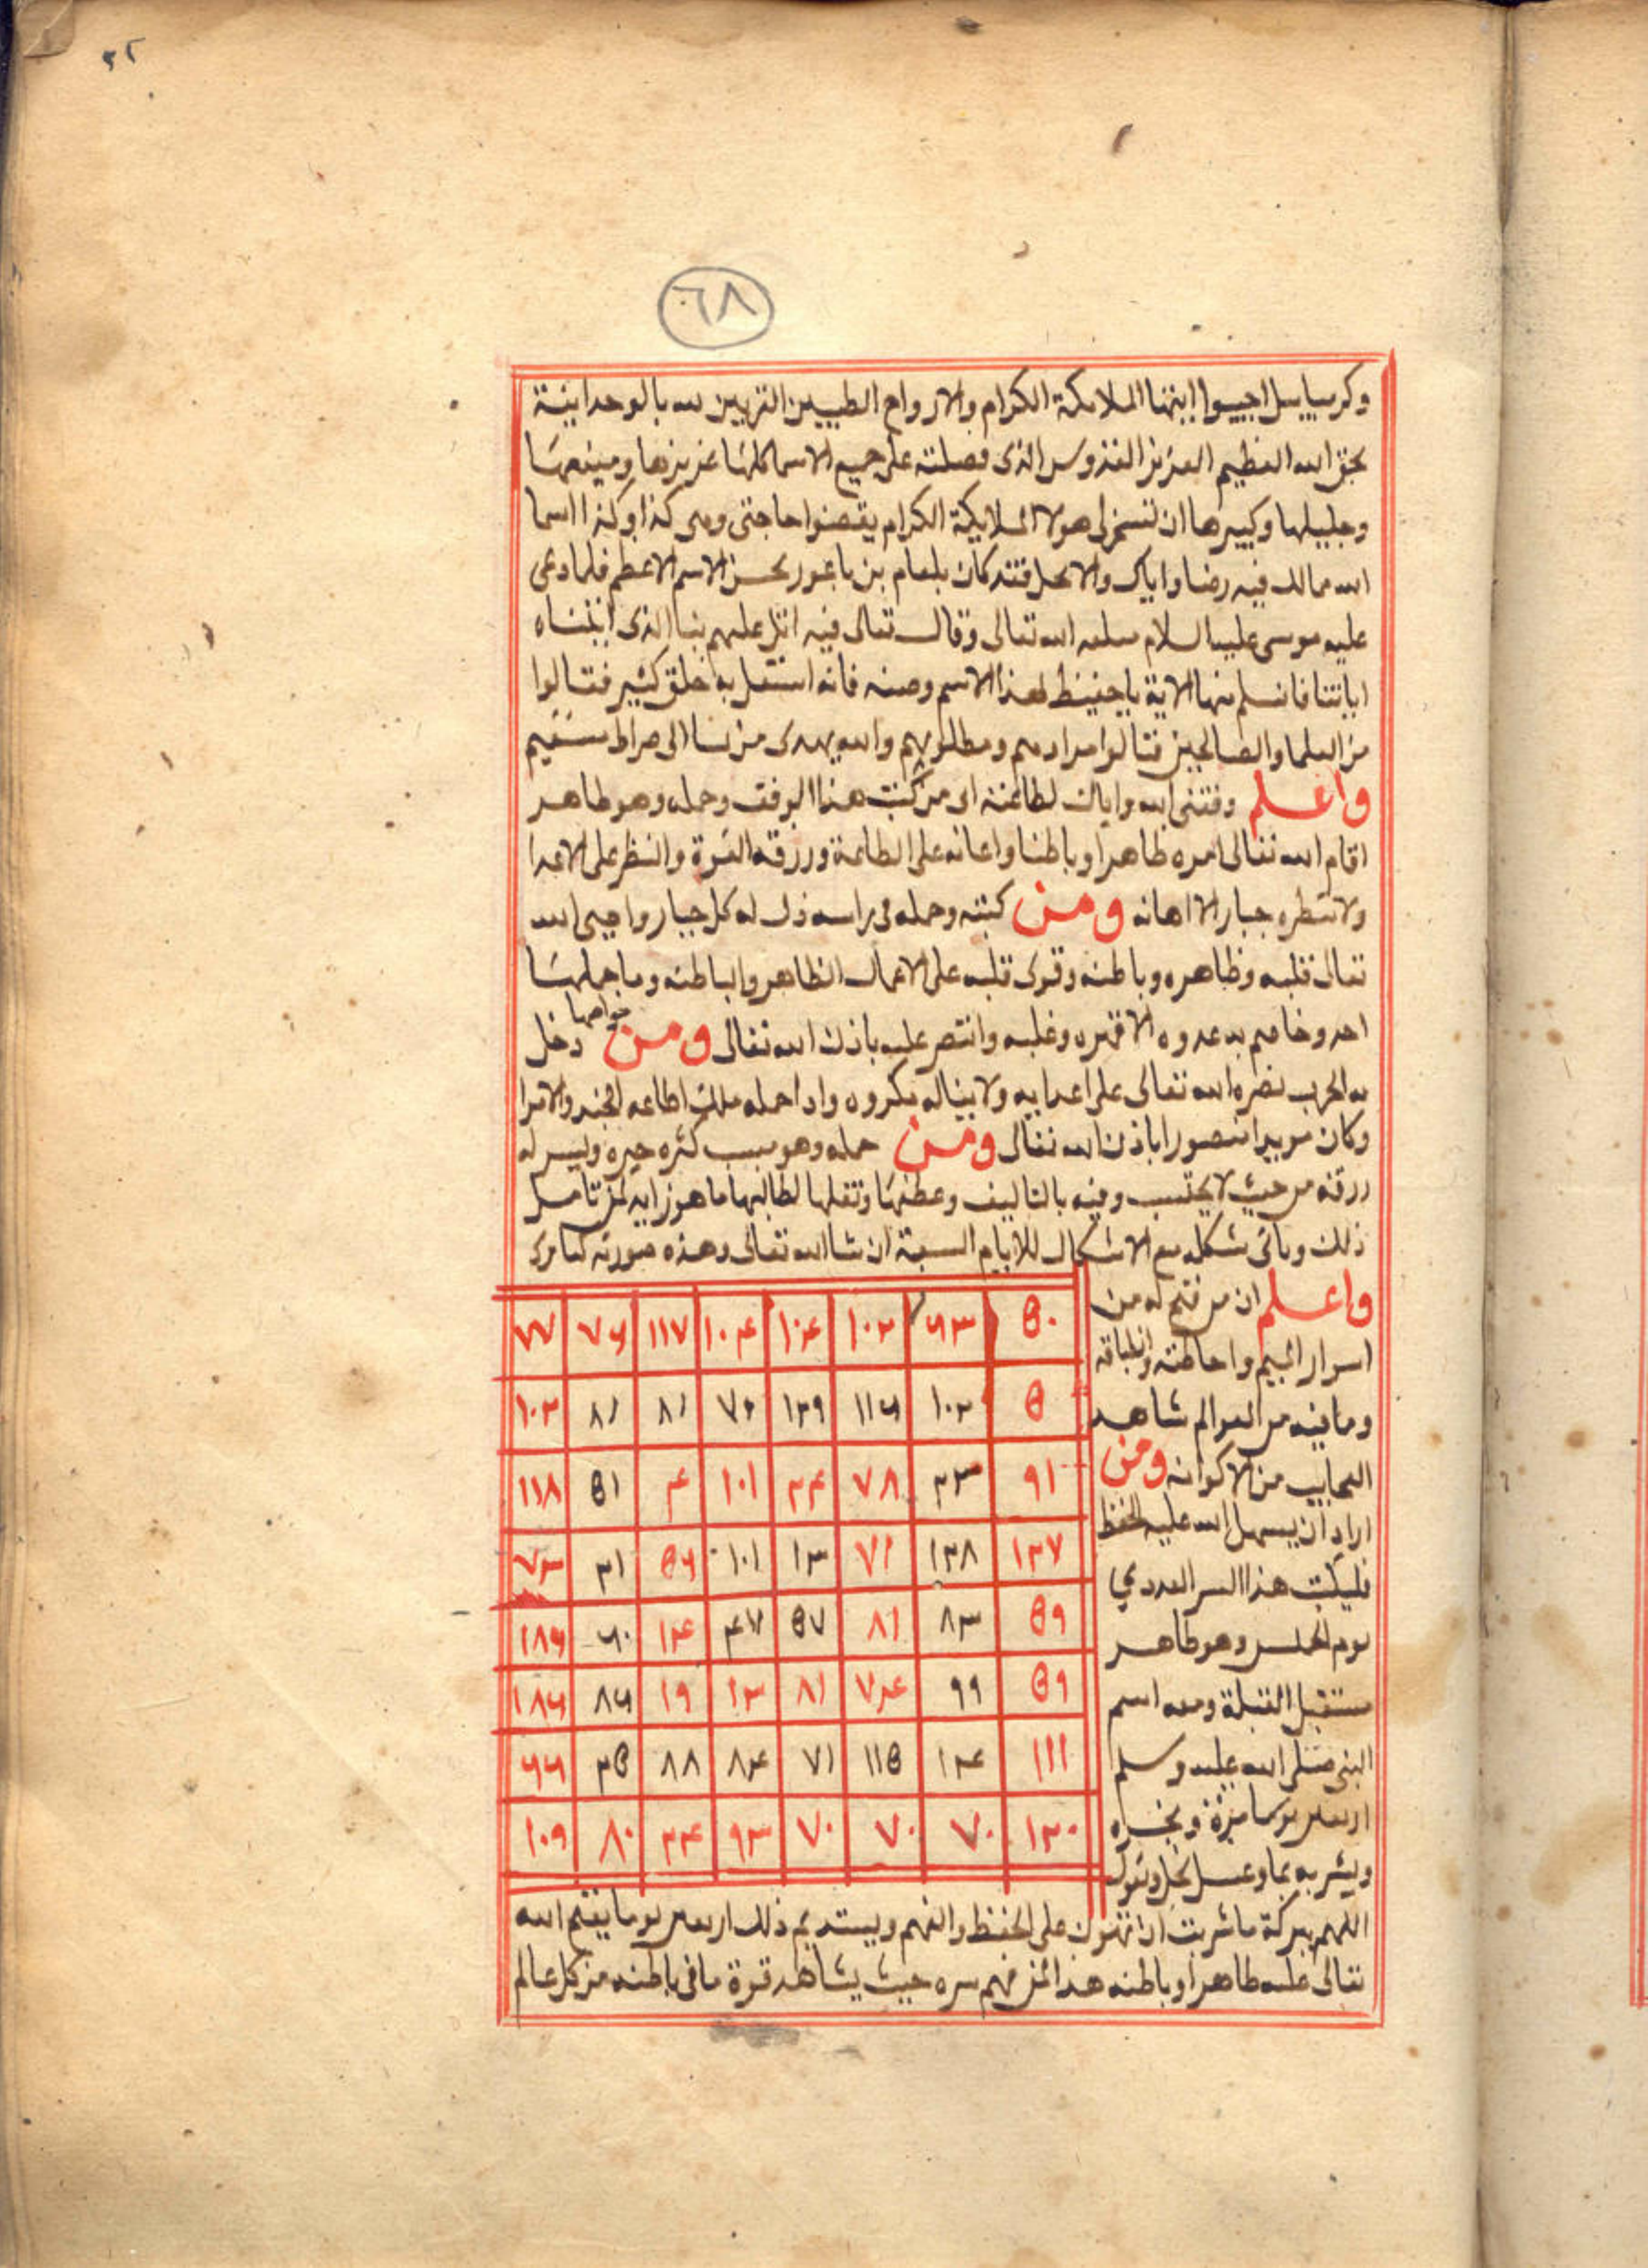 ٣٢
٦٨
وكرسياييل اجيبوا ايتها الملايكة الكرام والارواح الطيبين المقربين لله بالوحدانية
بحق الله العظيم العزيز القدوس الذى فضلته على جميع الاسما كلها عزيزها ومنيعها
وجليلها وكبيرها ان تسخر لى هولا الملايكة الكرام يقضوا حاجتى وهى كذا وكذا اسما
الله مما لك فيه رضا واياك والاهمل فقد كان بلعام بن باعور يحسن الاسم الاعظم فلما دعى
عليه موسى عليه السلام سلبه الله تعالى وقال تعالى فيه اتل عليهم نبا الذى اتيناه
اياتنا فانسلخ منها الاية ياحفيظ لهذا الاسم وصنه فانه اشتغل به خلق كثير فنالوا
من العلما والصالحين فنالوا مرادهم ومطلوبهم والله يهدى من يشا الى صراط مستقيم
واعلم وفقنى الله واياك لطاعته ان من كتب هذا الوفق وحمله وهو طاهر
اقام الله تعالى امره ظاهرا وباطنا واعانه على الطاعة ورزقه القوة والنظر على الاعدا
ولا ينظره جبار الا اهانه ومن كتبه وحمله فى راسه ذل له كل جبار واحيى الله
تعالى قلبه وظاهره وباطنه وقوى قلبه على الاعمال الظاهر والباطنه وما حملها
احد وخاصم به عدوه الا قهره وغلبه وانتصر عليه باذن الله تعالى ومن خواصها دخل
به الحرب نصره الله تعالى على اعدايه ولا يناله مكروه واذا حمله ملك اطاعه الجند والامرا
وكان مويدا منصورا باذن الله تعالى ومن حمله وهو سبب كثره خيره ويسر له
رزقه من حيث لا يحتسب وفيه بالتاليف وعطفها ونقلها لطالبها ما هو زايد لمن تامل
ذلك وياتى شكله مع الاشكال للايام السبعة ان شا الله تعالى وهذه صورته كما ترى
واعلم ان من فتح له من
اسرار الجيم واحاطته وانطباقه
وما فيه من العوالم شاهد
العجايب من الاكوانه ومن
اراد ان يسهل الله عليه الحفظ
فليكتب هذا السر العددي
يوم الخميس وهو طاهر
مستقبل القبلة ومعه اسم
النبى صلى الله عليه وسلم
اربعين يوما مرة وبخره
ويشربه بما وعسل نحل ويقول
٥٠ ٦٣ ١٠٢ ١٠٤ ١٠٤ ١١٧ ٧٦ ٧٧
٥ ١٠٢ ١١٦ ١٢٩ ٧٢ ٨١ ٨١ ١٠٢
٩١ ٢٣ ٧٨ ٢٤ ١٠١ ٤ ٥١ ١١٨
١٢٧ ١٢٨ ٧١ ١٣ ١٠١ ٥٦ ٢١ ٧٣
٥٩ ٨٣ ٨١ ٥٧ ٤٧ ١٤ ٦٠ ١٨٦
٥٩ ٩٩ ٧٤ ٨١ ١٣ ١٩ ٨٦ ١٨٦
١١١ ١٢٤ ١١٥ ٧١ ٨٤ ٨٨ ٣٥ ٦٦
١٢٠ ٧٠ ٧٠ ٧٠ ٩٣ ٢٤ ٨٠ ١٠٩
اللهم ببركة ما شربت ان تهون على الحفظ والفهم ويستديم ذلك اربعين يوما يفتح الله
تعالى عليه ظاهرا وباطنه هذا لمن فهم سره حيث يشاهد قوة ما فى باطنه من كل عالم